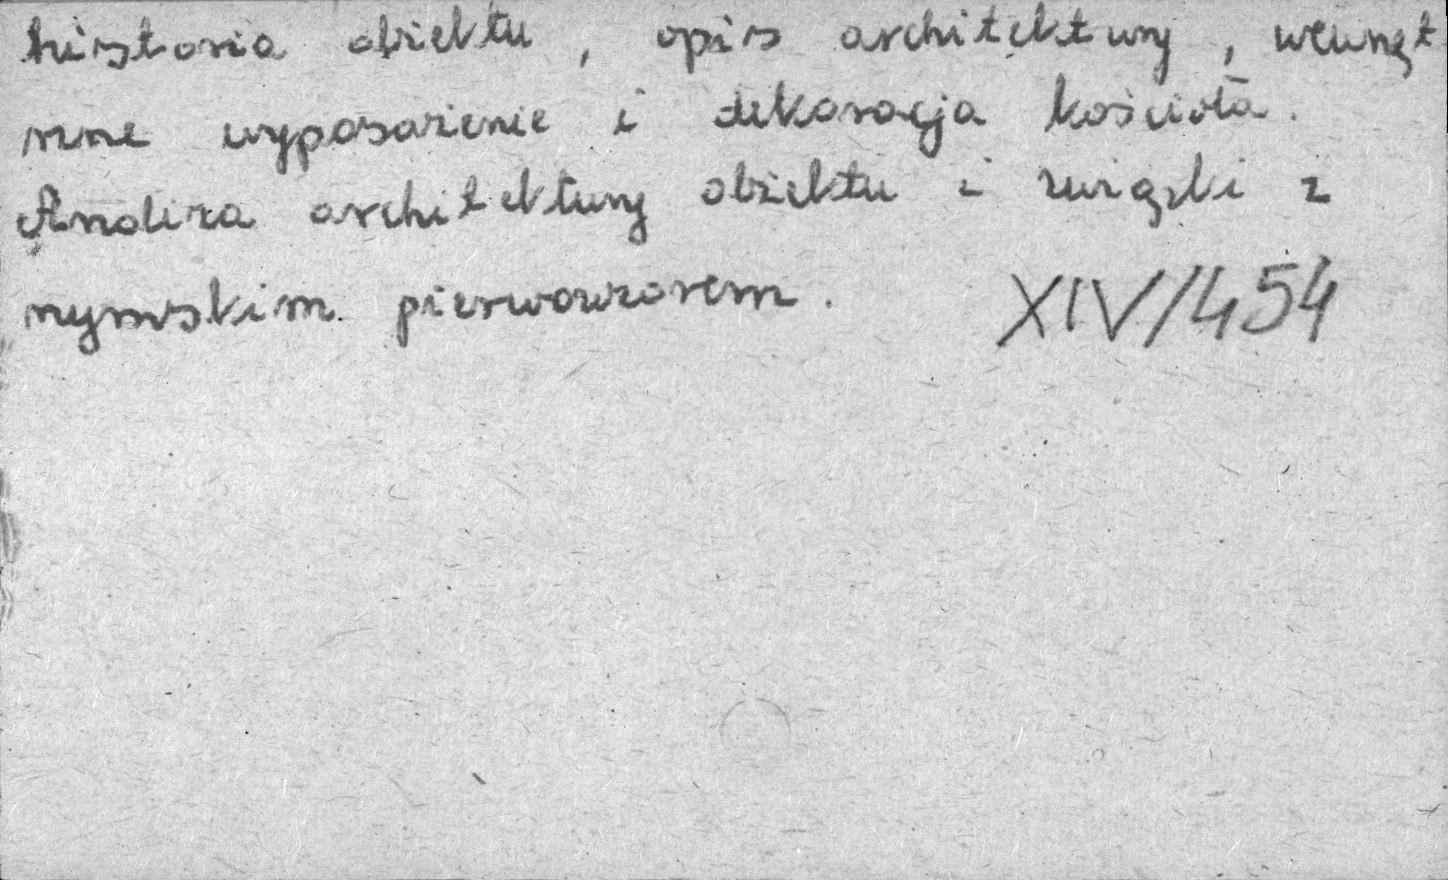 historia obiektu , opis architektury , wewnęt
rzne wyposażenie i dekoracja kościoła.
Analiza architektury obiektu i związki z
rzymskim pierwowzorem. XIV/454